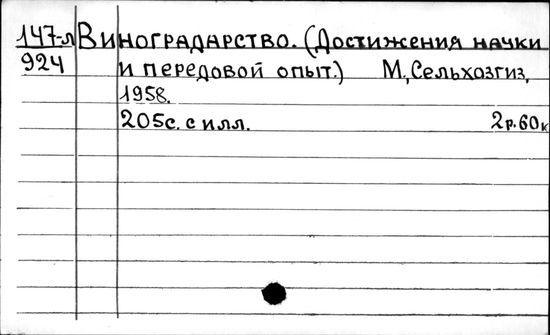 147-л Виноградарство. (Достижения науки
924 и передовой опыт.) М., Сельхозгиз,
1958.
205с. с илл. 2р.60к